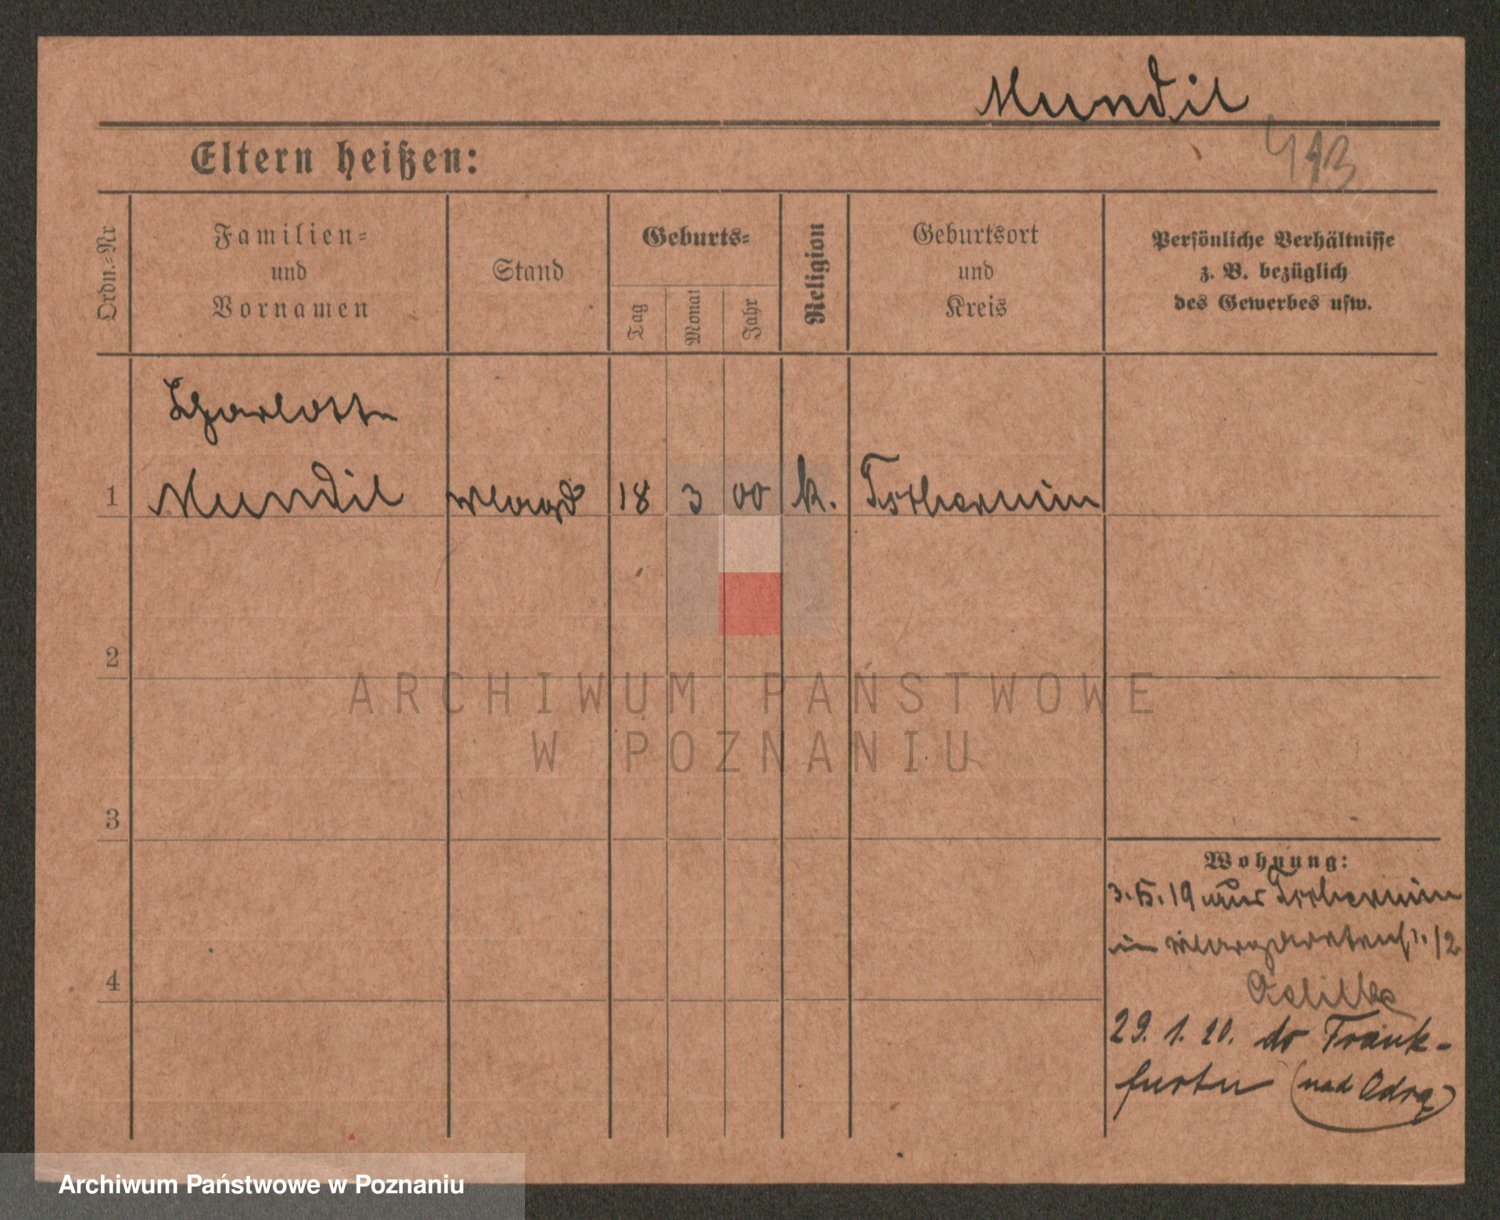 Mundil
413
Eltern heißen:
Ordn.=Nr
Familien=
und
Vornamen
Stand
Geburts=
Tag
Monat
Jahr
Religion
Geburtsort
und
Kreis
Persönliche Verhältnisse
z. B. bezüglich
des Gewerbes usw.
Charlotte
1 Mundil Magd 18 3 00 k.
2
3
4
ARCHIWUM PAŃSTWOWE
W POZNANIU
Wohnung:
3. 5. 19 aus
in 12
29. 1. 20. do Frank-
furtu (nad Odrą)
Archiwum Państwowe w Poznaniu